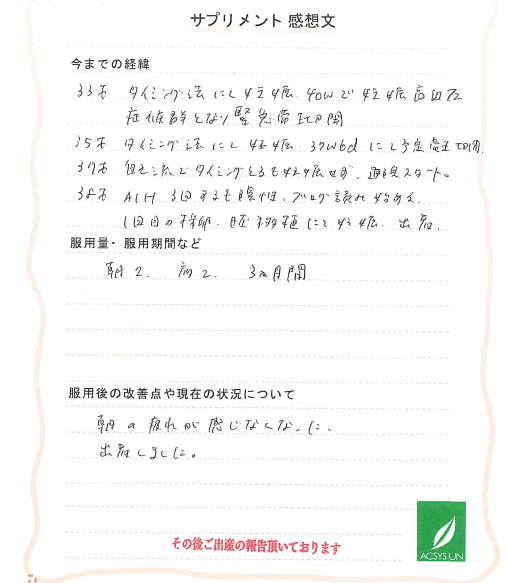 サプリメント 感想文
今までの経緯
33才 タイミング法にて妊娠. 40wで妊娠高血圧
症候群となり緊急帝王切開
35才 タイミング法にて妊娠. 37w6dにて予定帝王切開.
37才 自己流でタイミングとるも妊娠せず、通院スタート。
38才 AIH 3回するも陰性、ブログ読み始める.
1回目の採卵、胚移植にて妊娠. 出産.
服用量・服用期間など
朝2. 夜2. 3ヵ月間
服用後の改善点や現在の状況について
朝の疲れが感じなくなった、
出産しました。
その後ご出産の報告頂いております
ACSYS LIN